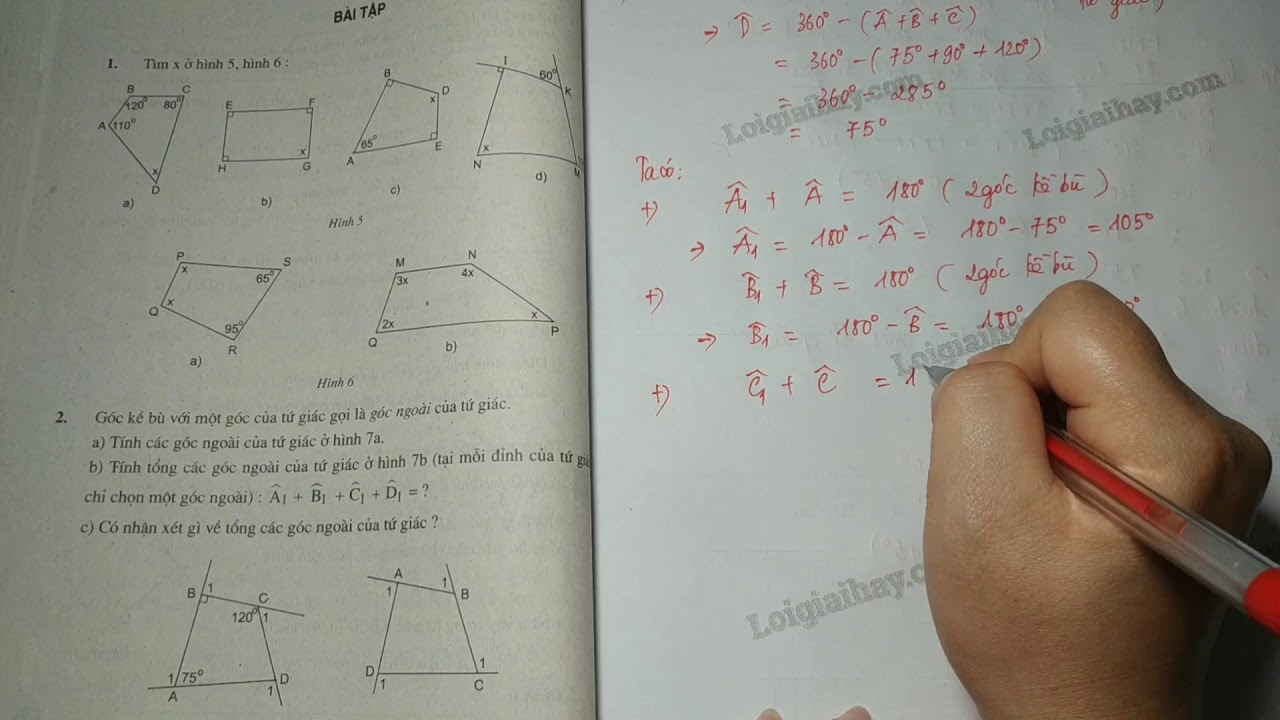 BÀI TẬP
1. Tìm x ở hình 5, hình 6 :
B C
120° 80°
A 110°
x
D
a)
E F
x
H G
b)
B
D
x
65°
A E
c)
I
60°
K
x
N M
d)
Hình 5
P S
x 65°
Q x
95°
R
a)
M N
3x 4x
2x x
Q P
b)
Hình 6
2. Góc kề bù với một góc của tứ giác gọi là góc ngoài của tứ giác.
a) Tính các góc ngoài của tứ giác ở hình 7a.
b) Tính tổng các góc ngoài của tứ giác ở hình 7b (tại mỗi đỉnh của tứ
chỉ chọn một góc ngoài) : Â₁ + B̂₁ + Ĉ₁ + D̂₁ = ?
c) Có nhận xét gì về tổng các góc ngoài của tứ giác ?
B 1 C
120° 1
1 75° D
A 1
A 1
1 B
D 1
1 C
→ D̂ = 360° - (Â + B̂ + Ĉ)
= 360° - (75° + 90° + 120°)
= 360° - 285°
= 75°
Ta có:
+) Â₁ + Â = 180° (2 góc kề bù)
→ Â₁ = 180° - Â = 180° - 75° = 105°
+) B̂₁ + B̂ = 180° (2 góc kề bù)
→ B̂₁ = 180° - B̂ = 180°
+) Ĉ₁ + Ĉ = 1
Loigiaihay.com
Loigiaihay.com
Loigiaihay.com